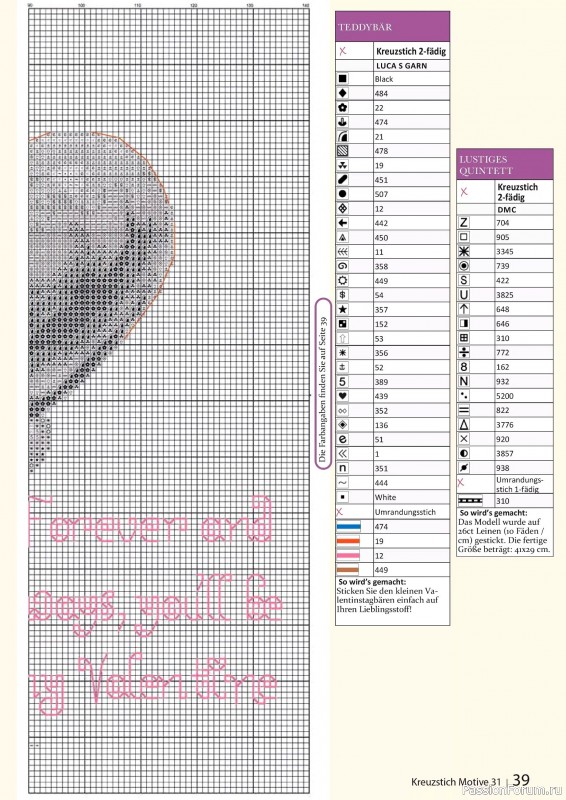 90 100 110 120 130 140
Forever and
ways, you'll be
my Valentine
Die Farbangaben finden Sie auf Seite 39
TEDDYBÄR
X Kreuzstich 2-fädig
LUCA S GARN
Black
484
22
474
21
478
19
451
507
12
442
450
11
358
449
$ 54
357
152
53
356
52
5 389
439
352
136
e 51
1
n 351
444
White
X Umrandungsstich
474
19
12
449
So wird's gemacht:
Sticken Sie den kleinen Va-
lentinstagbären einfach auf
Ihren Lieblingsstoff!
LUSTIGES
QUINTETT
X Kreuzstich
2-fädig
DMC
Z 704
905
3345
739
S 422
U 3825
648
646
310
772
8 162
N 932
5200
822
3776
920
3857
938
X Umrandungs-
stich 1-fädig
310
So wird's gemacht:
Das Modell wurde auf
26ct Leinen (10 Fäden /
cm) gestickt. Die fertige
Größe beträgt: 41x29 cm.
Kreuzstich Motive 31 | 39
PassionForum.ru